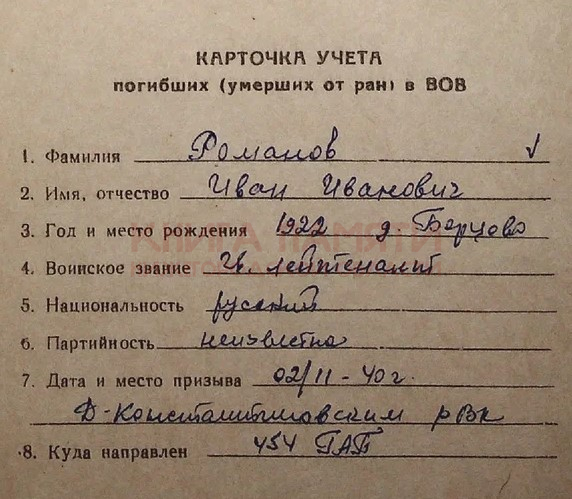 КАРТОЧКА УЧЕТА
погибших (умерших от ран) в ВОВ
1. Фамилия Романов √
2. Имя, отчество Иван Иванович
3. Год и место рождения 1922 д. Берцово
КНИГА ПАМЯТИ
4. Воинское звание Гв. лейтенант
5. Национальность русский
6. Партийность неизвестна
7. Дата и место призыва 02/11-40г.
Д-Константиновским РВК
8. Куда направлен 454 ГАП